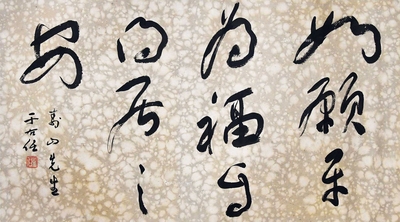 如願平
為福
得居之
安
壽山先生
于右任